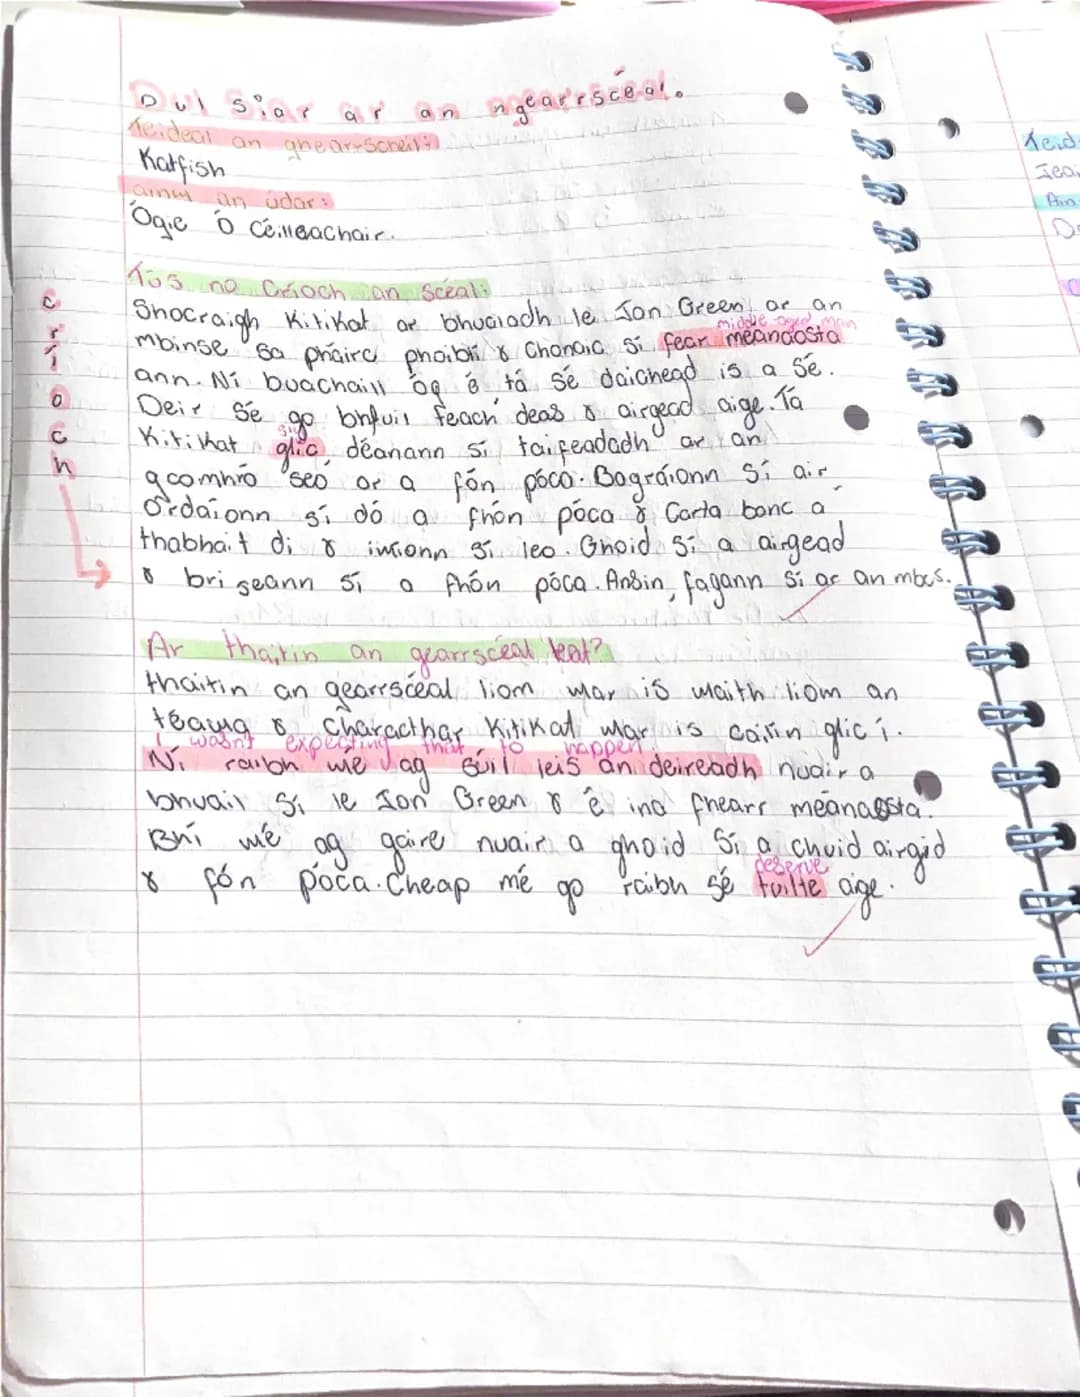 Dul siar ar an ngearrscéal.
Teideal an ghearrscéil:
Katfish
ainm an údar:
Ógie Ó Céilleachair.
Tús no Críoch an Scéal:
Críoch
Shocraigh Kitikat ar bhualadh le Jon Green ar an
middle aged man
mbinse sa pháirc phoiblí & Chonaic sí fear meánaosta
ann. Ní buachaill óg é tá sé daichead is a sé.
Deir sé go bhfuil teach deas & airgead aige. Tá
sly
Kitikat glic, déanann sí taifeadadh ar an
gcomhrá seo ar a fón póca. Bagraíonn sí air
Ordaíonn sí dó a fhón póca & Carta banc a
thabhait di & imíonn sí leo. Ghoid sí a airgead
& briseann sí a fhón póca. Ansin, fágann sí ar an mbus.
Ar thaitin an gearrscéal leat?
thaitin an gearrscéal liom mar is maith liom an
téama & charachtar Kitikat mar is cailín glic í.
I wasn't expecting that to happen
Ní raibh mé ag súil leis an deireadh nuair a
bhuail sí le Jon Green & é ina fhearr meánaosta.
Bhí mé ag gáire nuair a ghoid sí a chuid airgid
deserve
& fón póca. Cheap mé go raibh sé tuilte aige.
Teid
Ain